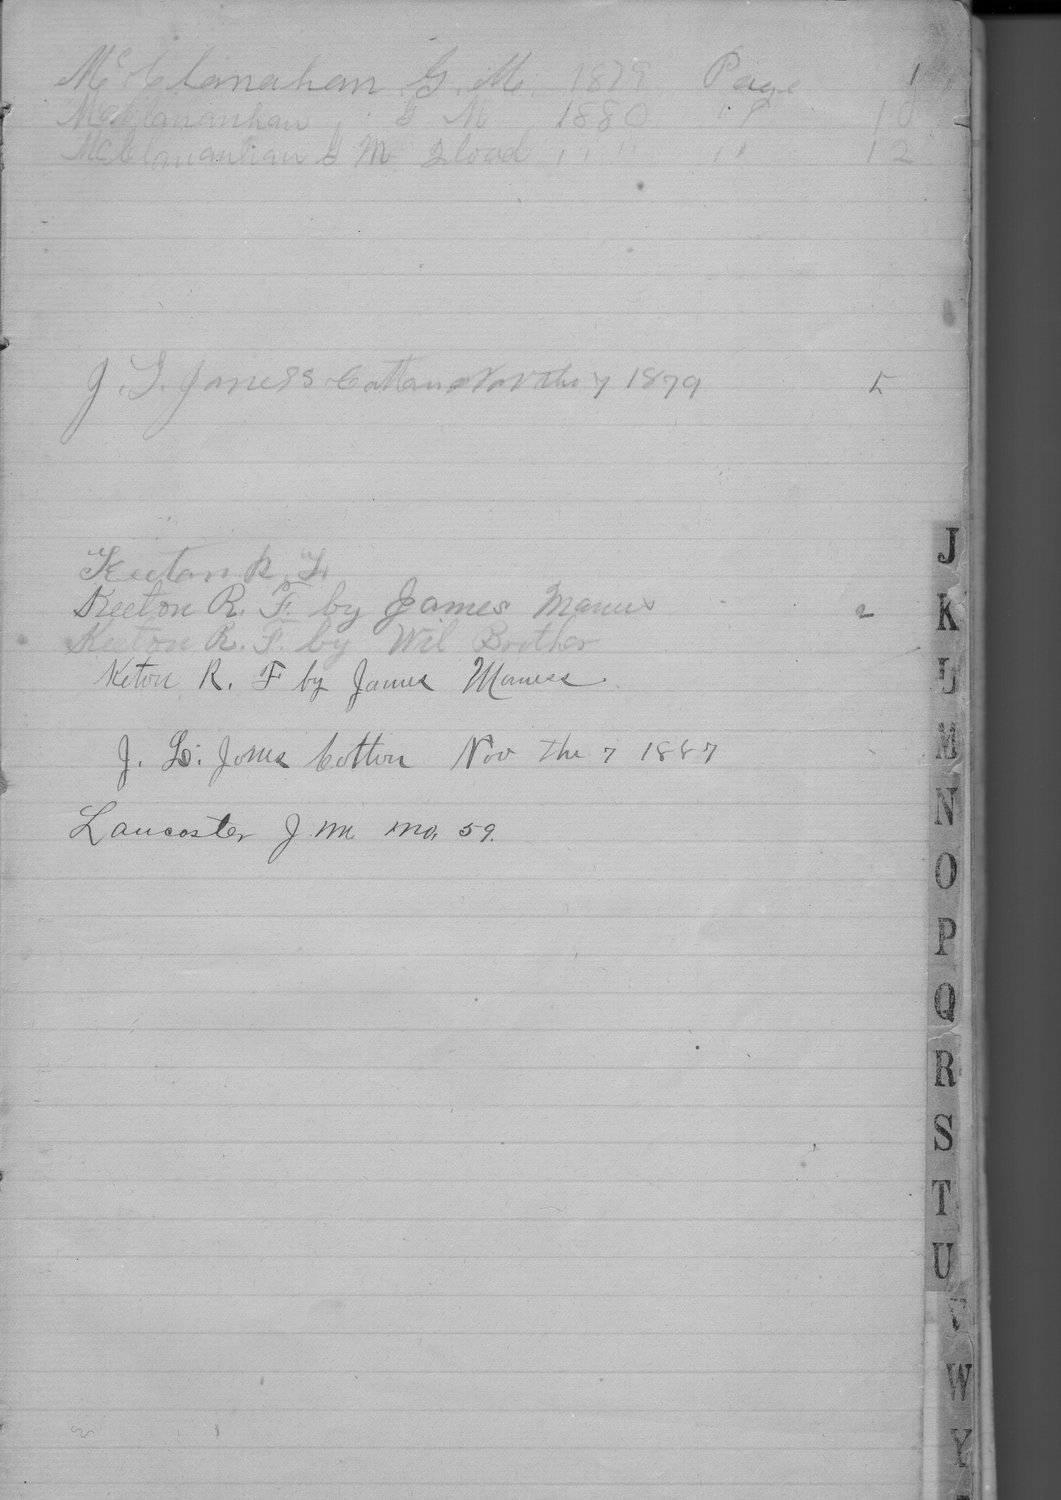 McClanahan G. M. 1879 Page 1
McClananhan G M 1880 " " 10
McClananhan G M " " " " 12
J. L. Joness Cottan Nov the 7 1879 5
Keeton R. F.
Keeton R. F. by James Maness 2
Keeton R. F. by Wil Brother
Keton R. F by James Maness
J. L. Jones Cotton Nov the 7 1887
Lancoster J. M. no. 59.
J
K
L
M
N
O
P
Q
R
S
T
U
V
W
Y